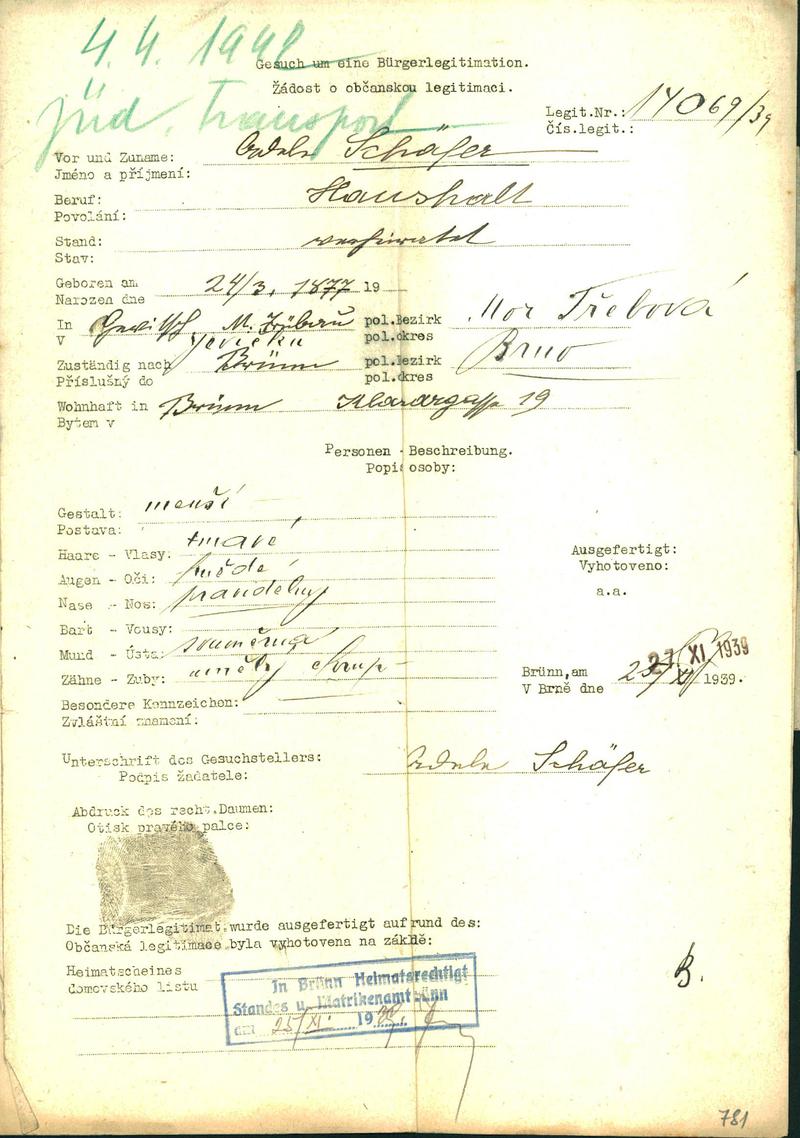 4.4. 1942
Gesuch um eine Bürgerlegitimation.
Žádost o občanskou legitimaci.
jüd. Transport
Legit.Nr.: 14069/39
Čís.legit.:
Vor und Zuname: Adele Schäfer
Jméno a příjmení:
Beruf: Haushalt
Povolání:
Stand: verheiratet
Stav:
Geboren am 24/3. 1877 19
Narozen dne
In Gewitsch M. Trübau pol.Bezirk Mor Třebová
V Jevíčku pol.okres
Zuständig nach Brünn pol.Bezirk Brno
Příslušný do pol.okres
Wohnhaft in Brünn 19
Bytem v
Personen - Beschreibung.
Popis osoby:
Gestalt: menší
Postava:
Haare - Vlasy: tmavé
Augen - Oči: hnědé
Nase - Nos: pravidelný
Bart - Vousy:
Mund - Ústa: souměrná
Zähne - Zuby: umělý chrup
Besondere Kennzeichen:
Zvláštní znamení:
Ausgefertigt:
Vyhotoveno:
a.a.
27 XI 1939
Brünn,am
V Brně dne 1939.
Unterschrift des Gesuchstellers: Adele Schäfer
Podpis žadatele:
Abdruck des recht.Daumen:
Otisk pravého palce:
Die Bürgerlegitimat.wurde ausgefertigt auf rund des:
Občanská legitimace byla vyhotovena na zákdě:
Heimatscheines
domovského listu
In Brünn Heimatsrechtigt
Standes u. Matrikenamt Brünn
am 25/XI. 1939
B.
781